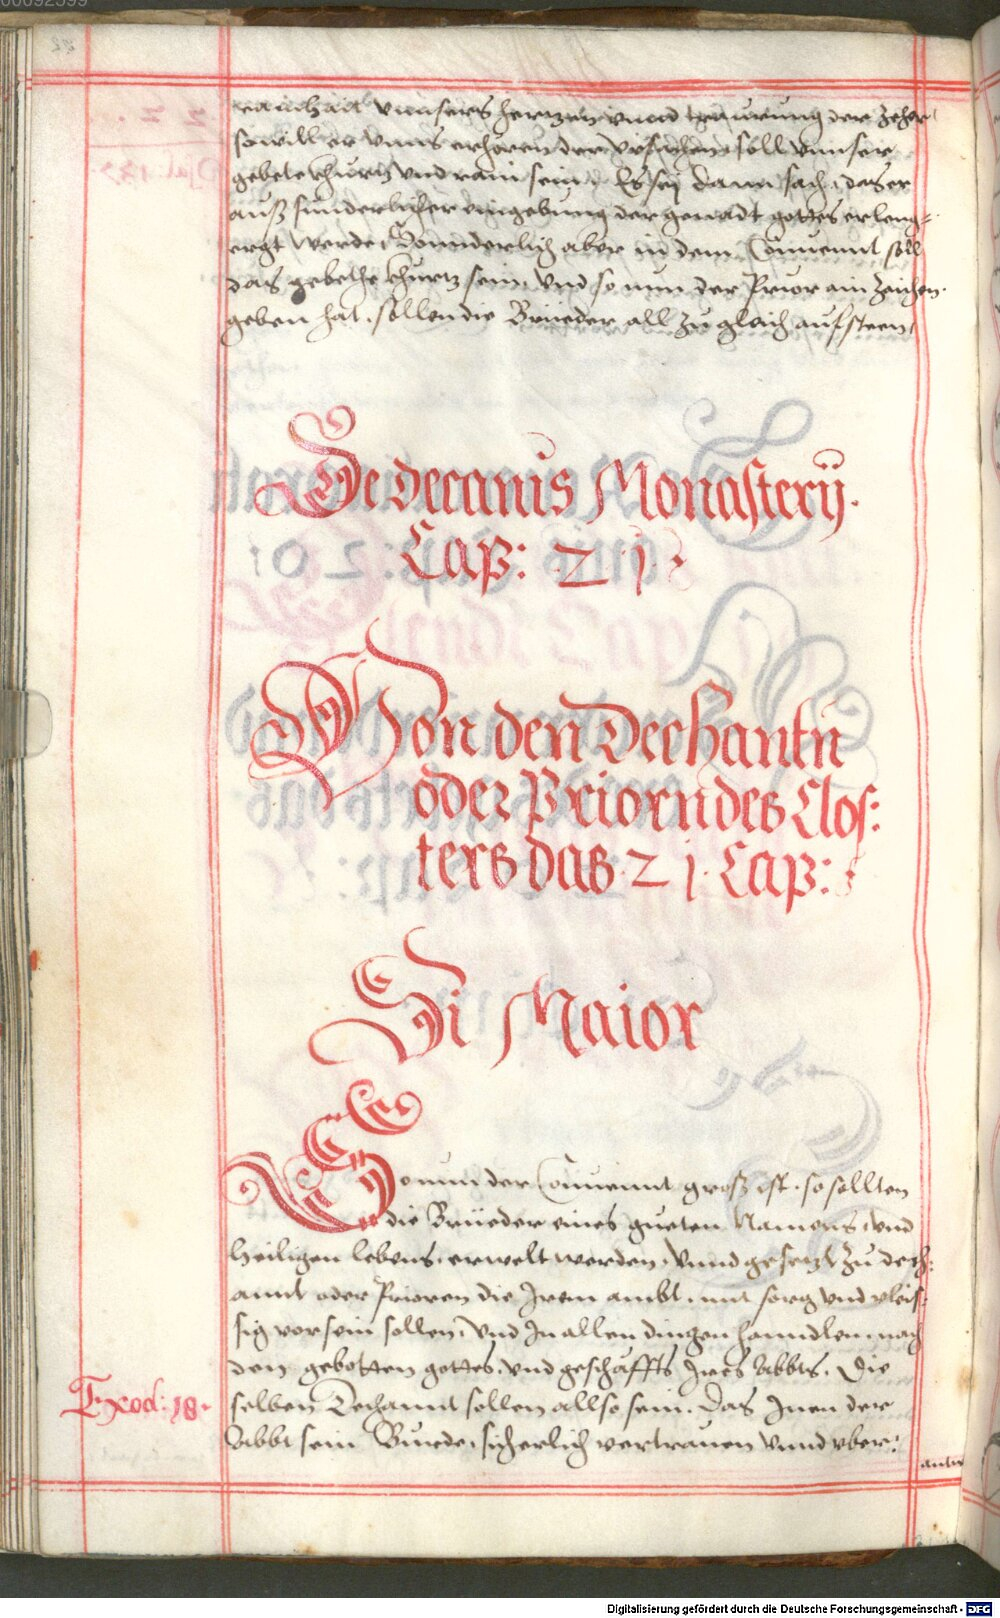 rainhait vnnsers hertzen vnnd traurung der zeher
so will er vnns erhoren der vrsachen soll vnnser
gebete khurtz vnd rain sein. Es sej dann sach, das er
auß sunderlicher eingebung der genadt gottes erleng=
ergt werde, Sonnderlich aber in dem Conuennt soll
das gebethe khurtz sein, Vnd so nun der Prior ain zaichen
geben hat. sollen die Brüeder all zu gleich aufsteen
De decanis Monasterij.
Cap: 21.
Von den Dechantn
oder Priorn des Clos=
ters das. 21. Cap:
Si Maior
So nun der Conuennt groß ist. so sollten
die Brüeder eines gueten Namens, vnd
heiligen lebens, erwelt werden, Vnnd gesetzt zu dech=
annt oder Prioren die Irem ambt. mit sorg vnd vleis=
sig vor sein sollen, Vnd In allen dingen hanndlen nach
den gebotten gottes, vnd geschäffts Ires Abbts. Die
selben Dechannt sollen allso sein. Das Inen der
Exod: 18.
Abbt sein Burde, sicherlich vertrauen Vnnd vber=
antw
Digitalisierung gefördert durch die Deutsche Forschungsgemeinschaft - DFG